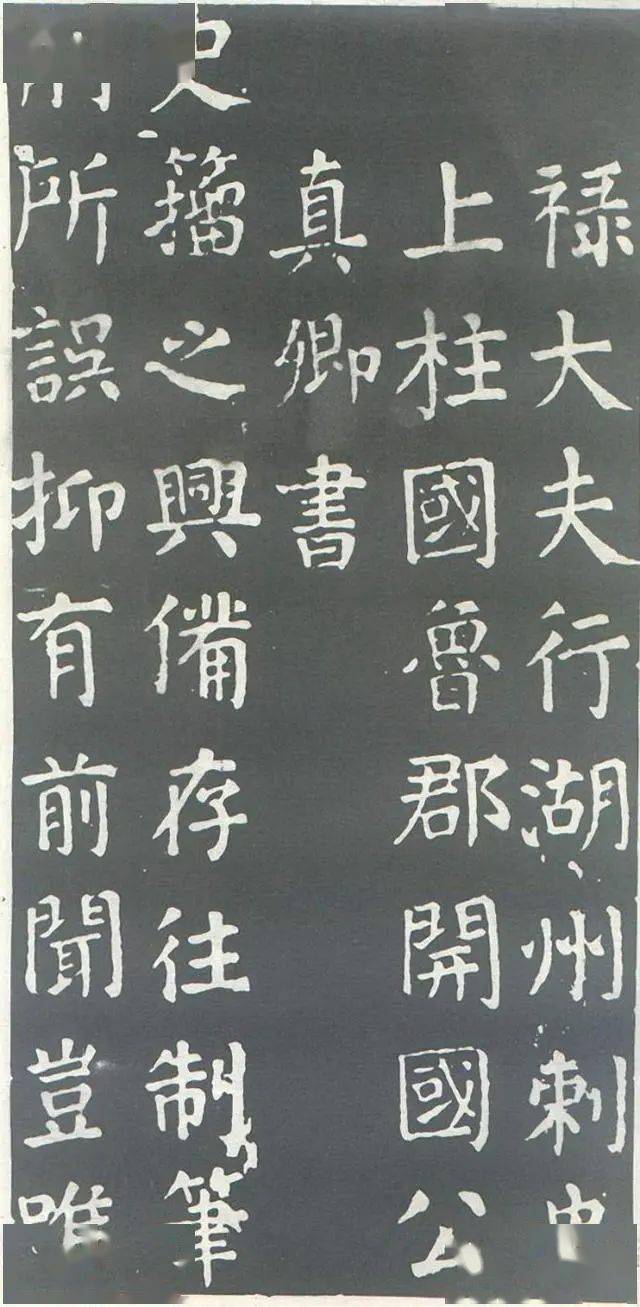 禄大夫行湖州刺史
上柱國魯郡開國公
真卿書
史籀之興備存往制筆
削所誤抑有前聞豈唯